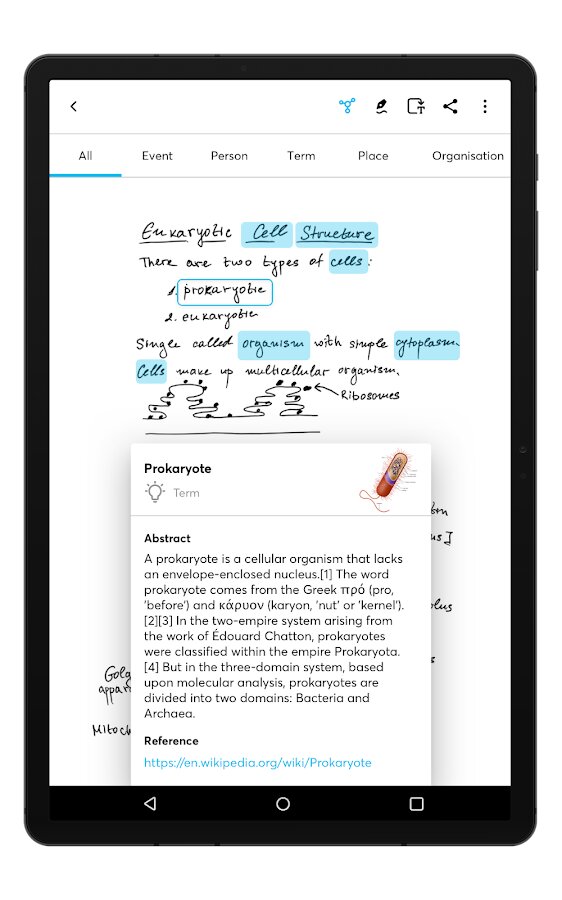 All Event Person Term Place Organisation
Eukaryotic Cell Structure
There are two types of cells:
1. prokaryotic
2. eukaryotic
Single called organism with simple cytoplasm.
Cells make up multicellular organism.
Ribosomes
Prokaryote
Term
Abstract
A prokaryote is a cellular organism that lacks
an envelope-enclosed nucleus.[1] The word
prokaryote comes from the Greek πρό (pro,
'before') and κάρυον (karyon, 'nut' or 'kernel').
[2][3] In the two-empire system arising from
the work of Édouard Chatton, prokaryotes
were classified within the empire Prokaryota.
[4] But in the three-domain system, based
upon molecular analysis, prokaryotes are
divided into two domains: Bacteria and
Archaea.
Reference
https://en.wikipedia.org/wiki/Prokaryote
Golg
appar
Mitoch